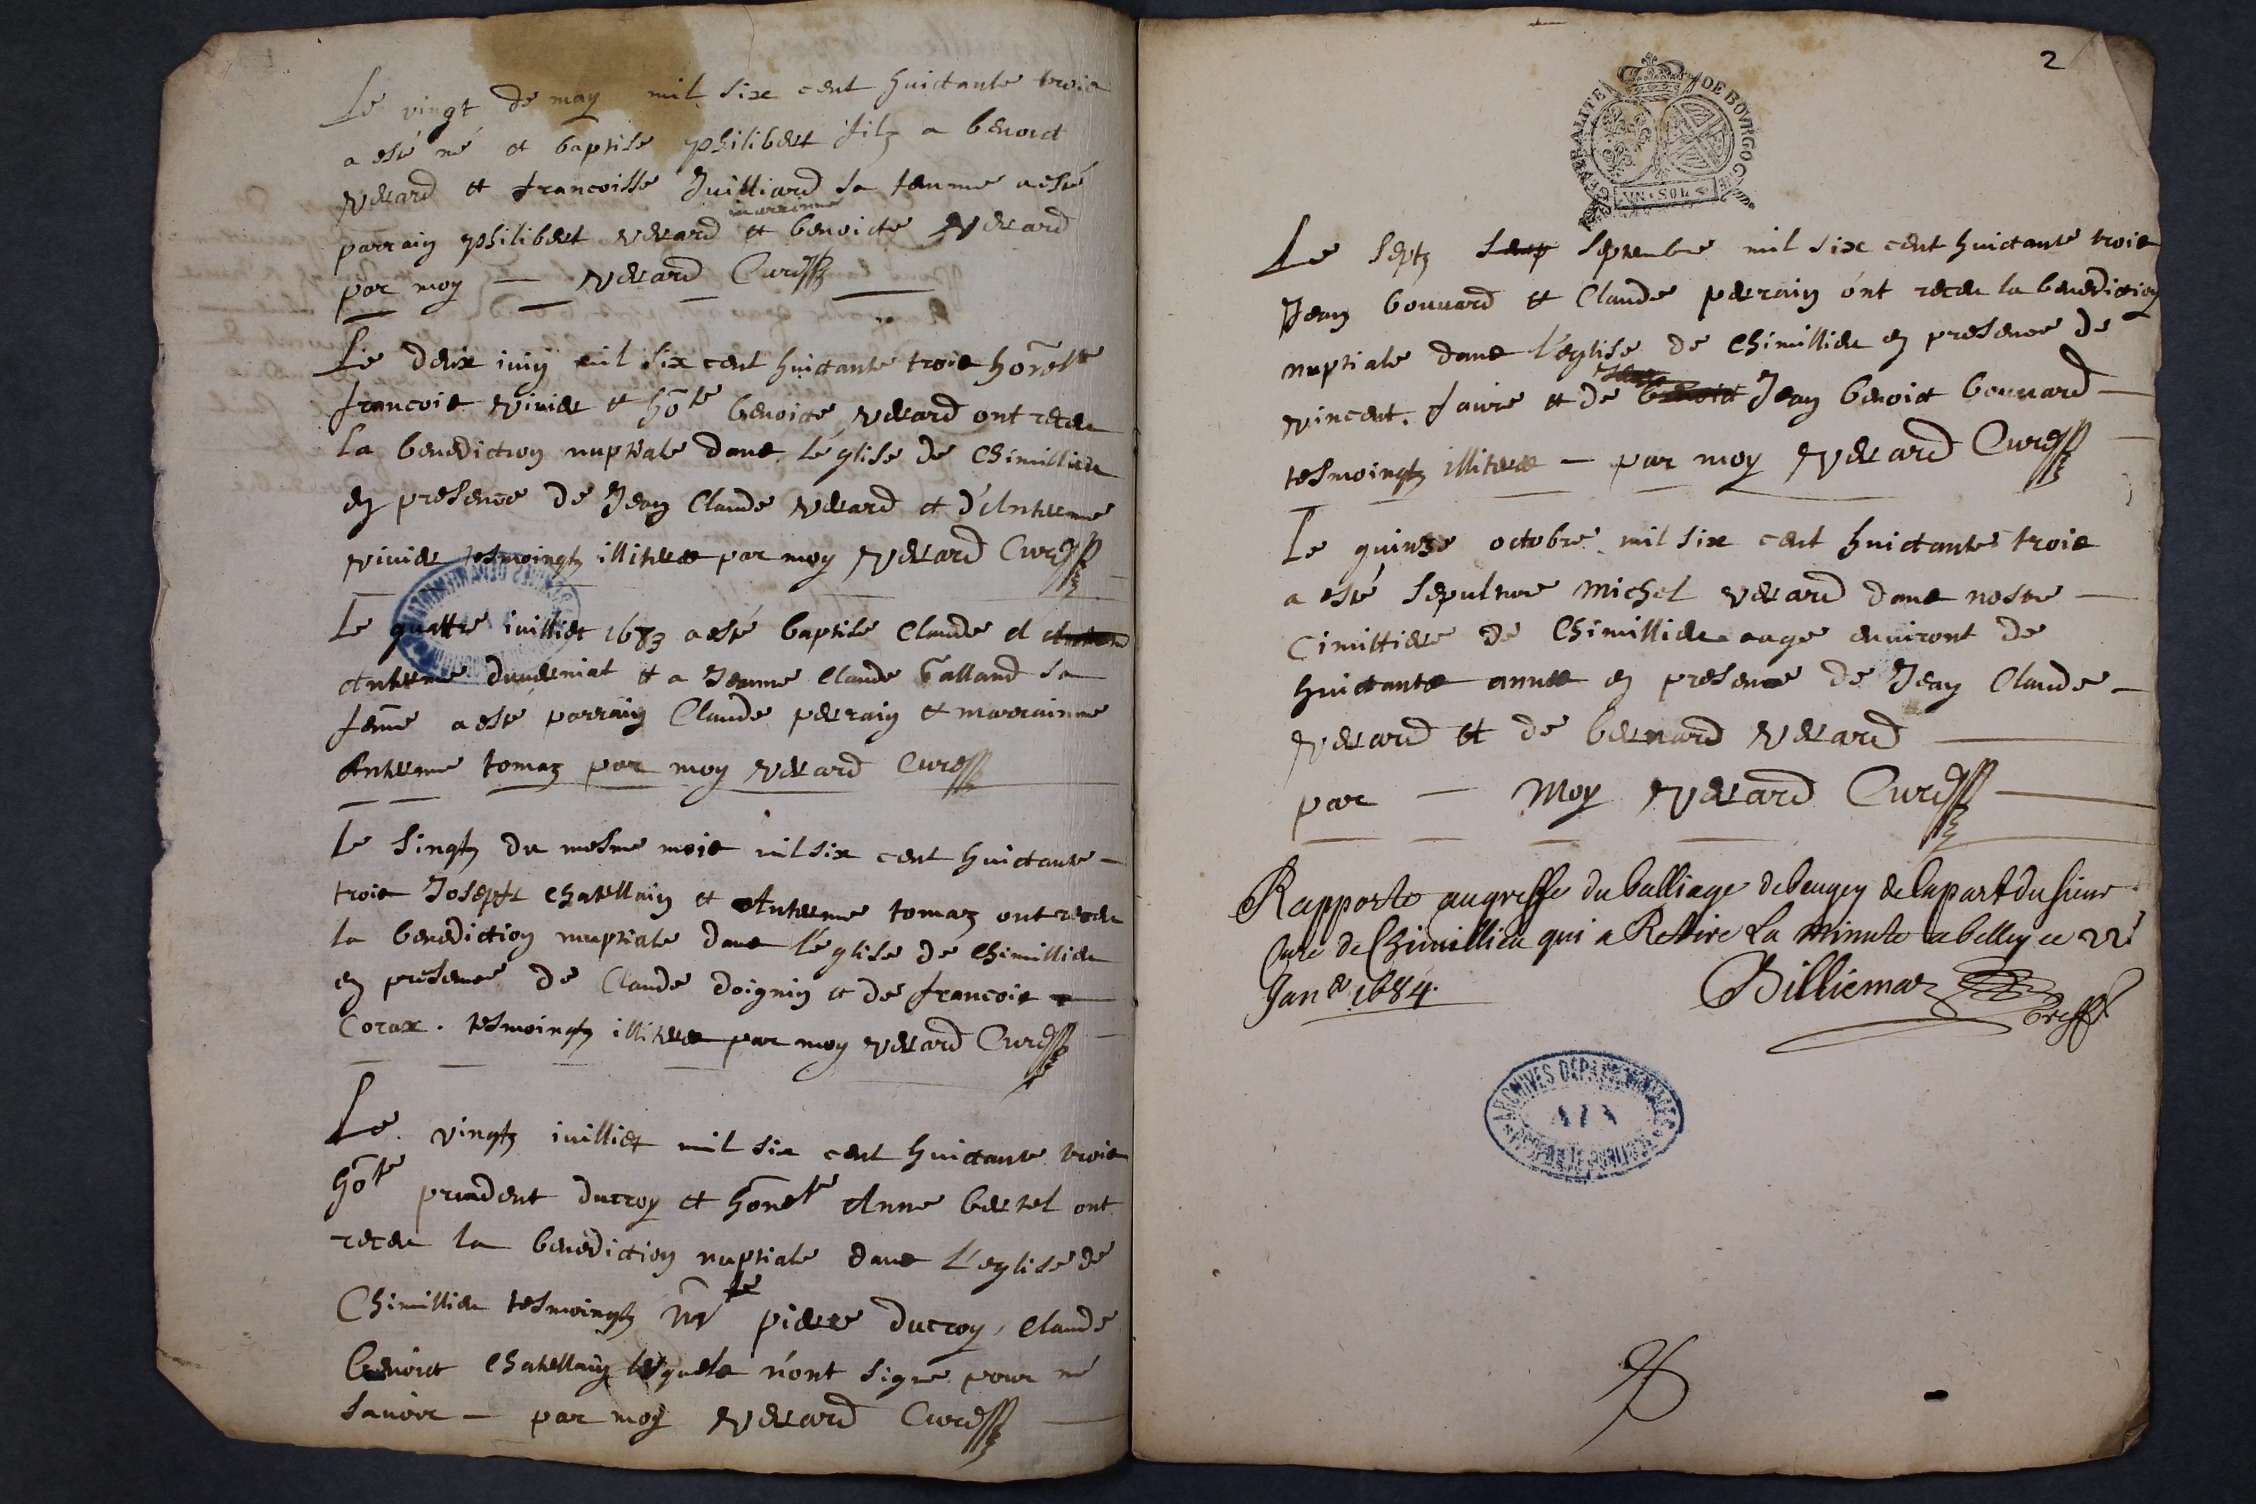 Le vingt de may mil six cent huictante trois
a esté né et baptise philibert filz a benoict
Verard et francoisse Juilliard sa femme a esté
marrinne
parrain philibert verard et benoicte Verard
par moy — Verard Curé
Le deux iuin mil six cent huictante trois honeste
francois vivier et hoste benoicte verard ont receu
la benediction nuptiale dans l'eglise de Chimillieu
en presence de Jean Claude verard et d'Anterme
vivier tesmoingtz illiteres par moy Verard Curé
Le quattre iuilliet 1683 a esté baptise Claude d
Anterme duverniat et a Jeanne Claude Galland sa
femme a esté parrain Claude perrain et marrainne
Anterme tomaz par moy verard Curé
Le singtz du mesme mois mil six cent huictante
trois Joseptz Chatellain et Anterme tomaz ont receu
la benediction nuptiale dans l'eglise de Chimillieu
en presence de Claude doignin et de francois
Corax . tesmoingtz illiteres par moy verard Curé
Le vingtz iuilliet mil six cent huictante trois
hoste prudent ducroy et honeste Anne bertet ont
receu la benediction nuptiale dans l'eglise de
Chimillieu tesmoingtz pierre ducroy, Claude
benoict Chatellain lesquels n'ont signe pour ne
savoir — par moy Verard Curé
2
GENERALITE DE BOURGOGNE
VN · SOL
Le septz septembre mil six cent huictante trois
Jean bouvard et Claude perrain ont receu la benediction
nuptiale dans l'eglise de Chimillieu en presence de
Jean
vincent faivre et de benoict Jean benoict bouvard —
tesmoingtz illiteres — par moy Verard Curé
Le quinze octobre mil six cent huictante trois
a esté sepulture Michel verard dans nostre —
Cimittiere de Chimillieu auge environt de
huictante annees en presence de Jean Claude —
Verard et de bernard verard —
par — Moy Verard Curé —
Rapporte au greffe du balliage de beugey de la part du sieur
Curé de Chimillieu qui a Rettire La Minute a belley ce 22
Janer 1684.
Billiemaz greff
ARCHIVES DÉPARTEMENTALES
AIN